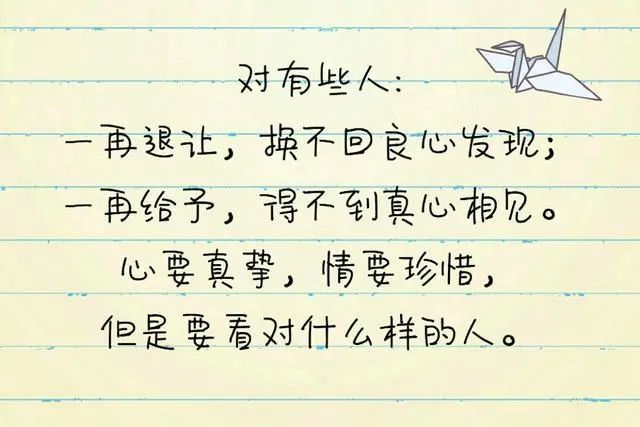 对有些人:
一再退让，换不回良心发现；
一再给予，得不到真心相见。
心要真挚，情要珍惜，
但是要看对什么样的人。